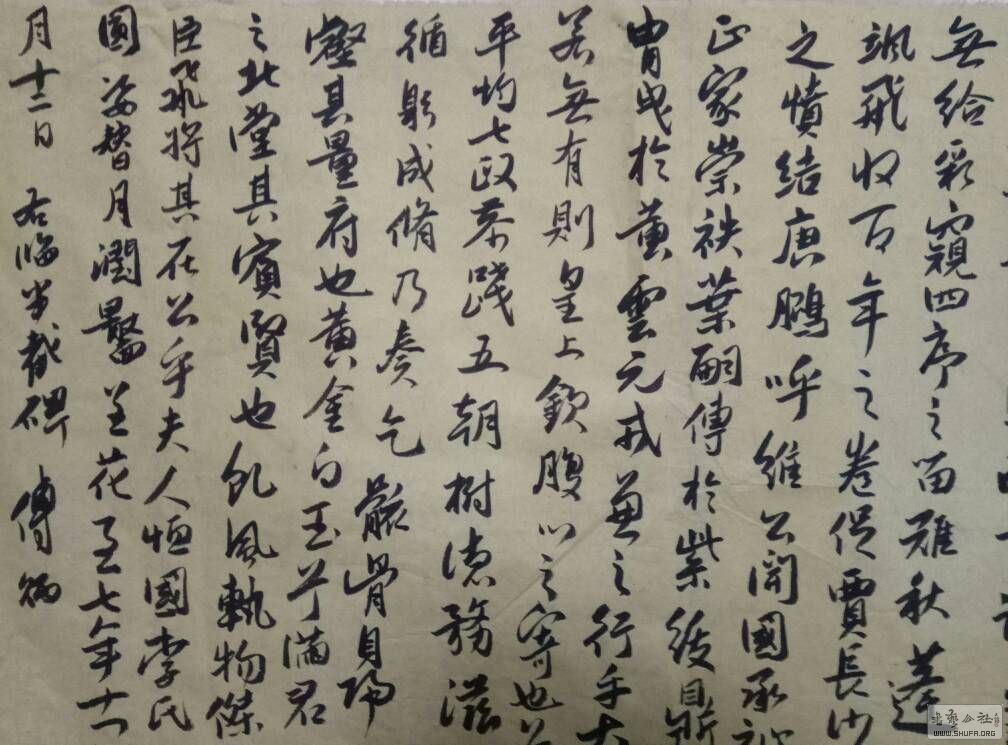 無給彩窺四序之笛雖秋蓬
颯飛收百年之卷促賈長沙
之憤結庚鵬呼維公開國承
正家崇袟葉嗣傳於紫綬
胄曳於黄雲元戎兼之行乎大
若無有則皇上欽腹心之寄也公
平均七政恭踐五朝樹德務滋
循躬成脩乃奏乞骸骨歸
壑其量府也黃金白玉滿君
之北堂其賓賢也風執物傑
臣飛將其在公乎夫人恒國李氏
圓姿替月潤呈花至七年十一
月十二日 右臨半截碑 傅炳
書藝公社
WWW.SHUFA.ORG